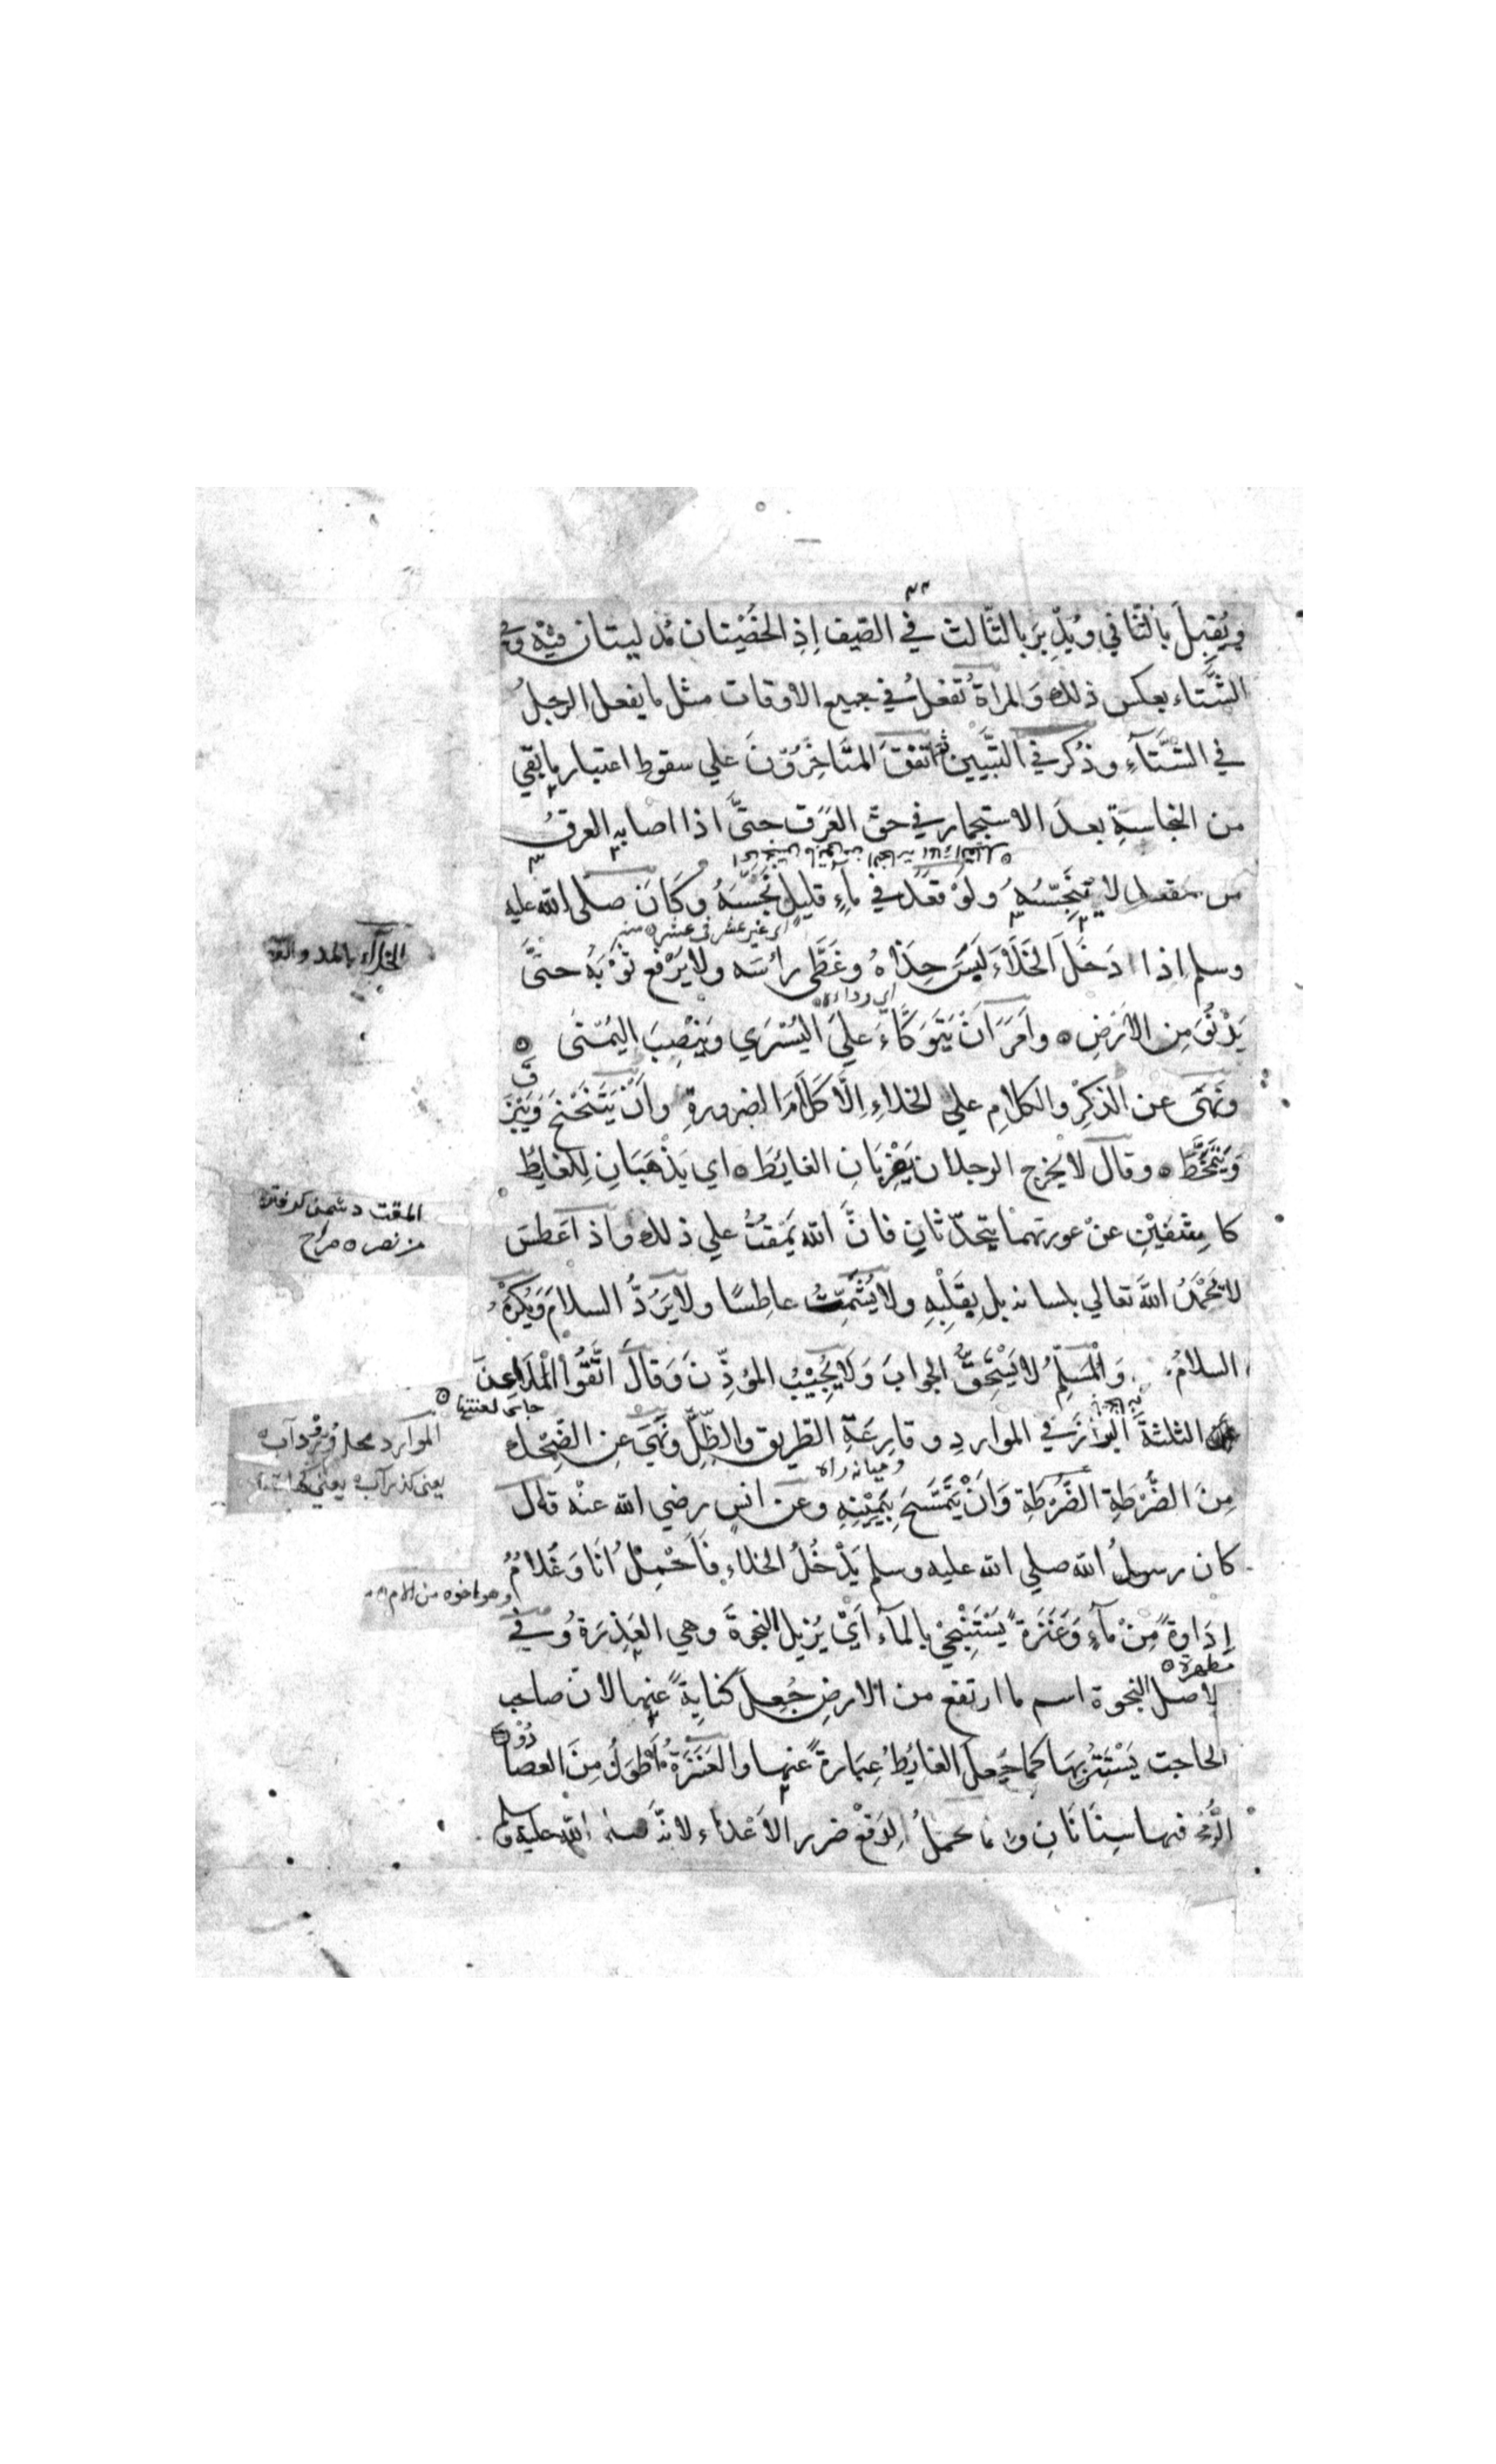 ويُقبِلَ بالثّاني ويُدْبِرَ بالثّالث في الصّيف اِذِ الخُصْيتان مُدليتان فيه وفي
الشّتاء بعكس ذلك وَالمراة تَفعَلُ في جميع الاوقات مثل ما يفعل الرجلُ
في الشّتَآءِ وذُكر في التّبيين ثم اتفقَ المتَاَخِّرُوْنَ علي سقوط اعتبار ما بقي
من النجاسةِ بعدَ الاستجمار في حقّ العَرَقِ حتَّى اذا اصابه العرقُ
من مقعد لا يُنَجِّسُهُ ولَوْ قعَدَ في مآءٍ قليلٍ نَجَّسَهُ وكَانَ صلى الله عليه
اى غير عشر في عشره منه
وسلم اِذا دَخَلَ الخَلَآءَ لَبِسَ حِذَاهُ وغَطَّى رائسَه ولا يَرْفع ثَوْبَهُ حتَّى
اي رداءه
يَدْنُوَ مِن الارْضِ ه واَمَرَ اَنْ يَتَوَكَّاءَ عَلىَ اليُسْرَي ويَنْصِبَ اليُمْنَى ه
ونَهَىَ عن الذِكْرِ والكلامِ علي الخلاءِ اِلَّا كَلَامَ الضرورةِ واَنْ يَتَنَحْنَحَ وَيَبْزُقَ
وَيَتَمَخَّطَ ه وقال لا يخرج الرجلان يَضْرِبَانِ الغايُطَ ه اي يَذْهَبَانِ لِلغايطِ
كاشِفَيْنِ عَنْ عورتهما يتحدّثانِ فانَّ الله يَمْقتُ علي ذلك واذا عَطسَ
لا يَحْمَدُ اللهَ تعالي بلسانه بل بِقَلْبِهِ ولا يُشْمِّتُ عاطِسًا ولا يَرُدُّ السلامَ وَيُكْرَهُ
السلامُ وَالْمُسَلِّمُ لا يَسْتَحِقُّ الجوابَ وَلَا يُجِيْبُ المؤذِّنَ وَقالَ اتَّقُوا الْمَلَاعِنَ
جاى لعنتها ه
الثلثةَ البَرازَ في المواردِ وقارِعَةِ الطّريق والظِّلِّ ونَهىَ عِن الضِّحْك
وميانه راه
مِنَ الضَّرْطَةِ الضَّرْطَةِ وَاَنْ يَتَمَسَّحَ بِيَمِيْنِهِ وعَن انسٍ رضي الله عنْه قال
كان رسولُ الله صلي الله عليه وسلم يَدْخُلُ الخلاء فَاَحْمِلُ اَنَا وَغُلامٌ
وهو اخوه من الام
اِدَاوةً مِنْ مآءٍ وَعَنَزَةً يَسْتَنْجِيْ بالمآء اَيْ يُزيل النجوةَ وهي العَذِرَةُ وفي
مطهرة ه
الاصل النجوة اسم ما ارتفع من الارضِ جُعِلَ كنايةً عنها لان صاحب
الحاجت يَسْتَتِرُ بِهَا كما جُعِلَ الغايُطُ عِبَارةً عنها والعَنَزَةُ اَطْوَلُ مِنَ العصا دُوْنَ
الرُّمْحِ فيها سِنَانَانِ وانما يحملُ لِدَفْعِ ضرر الاَعْداء لانّه صلى الله عليه وسلم
الخلآء بالمد
المقت دشمنى
من نصر ه صراح
الموارد محل